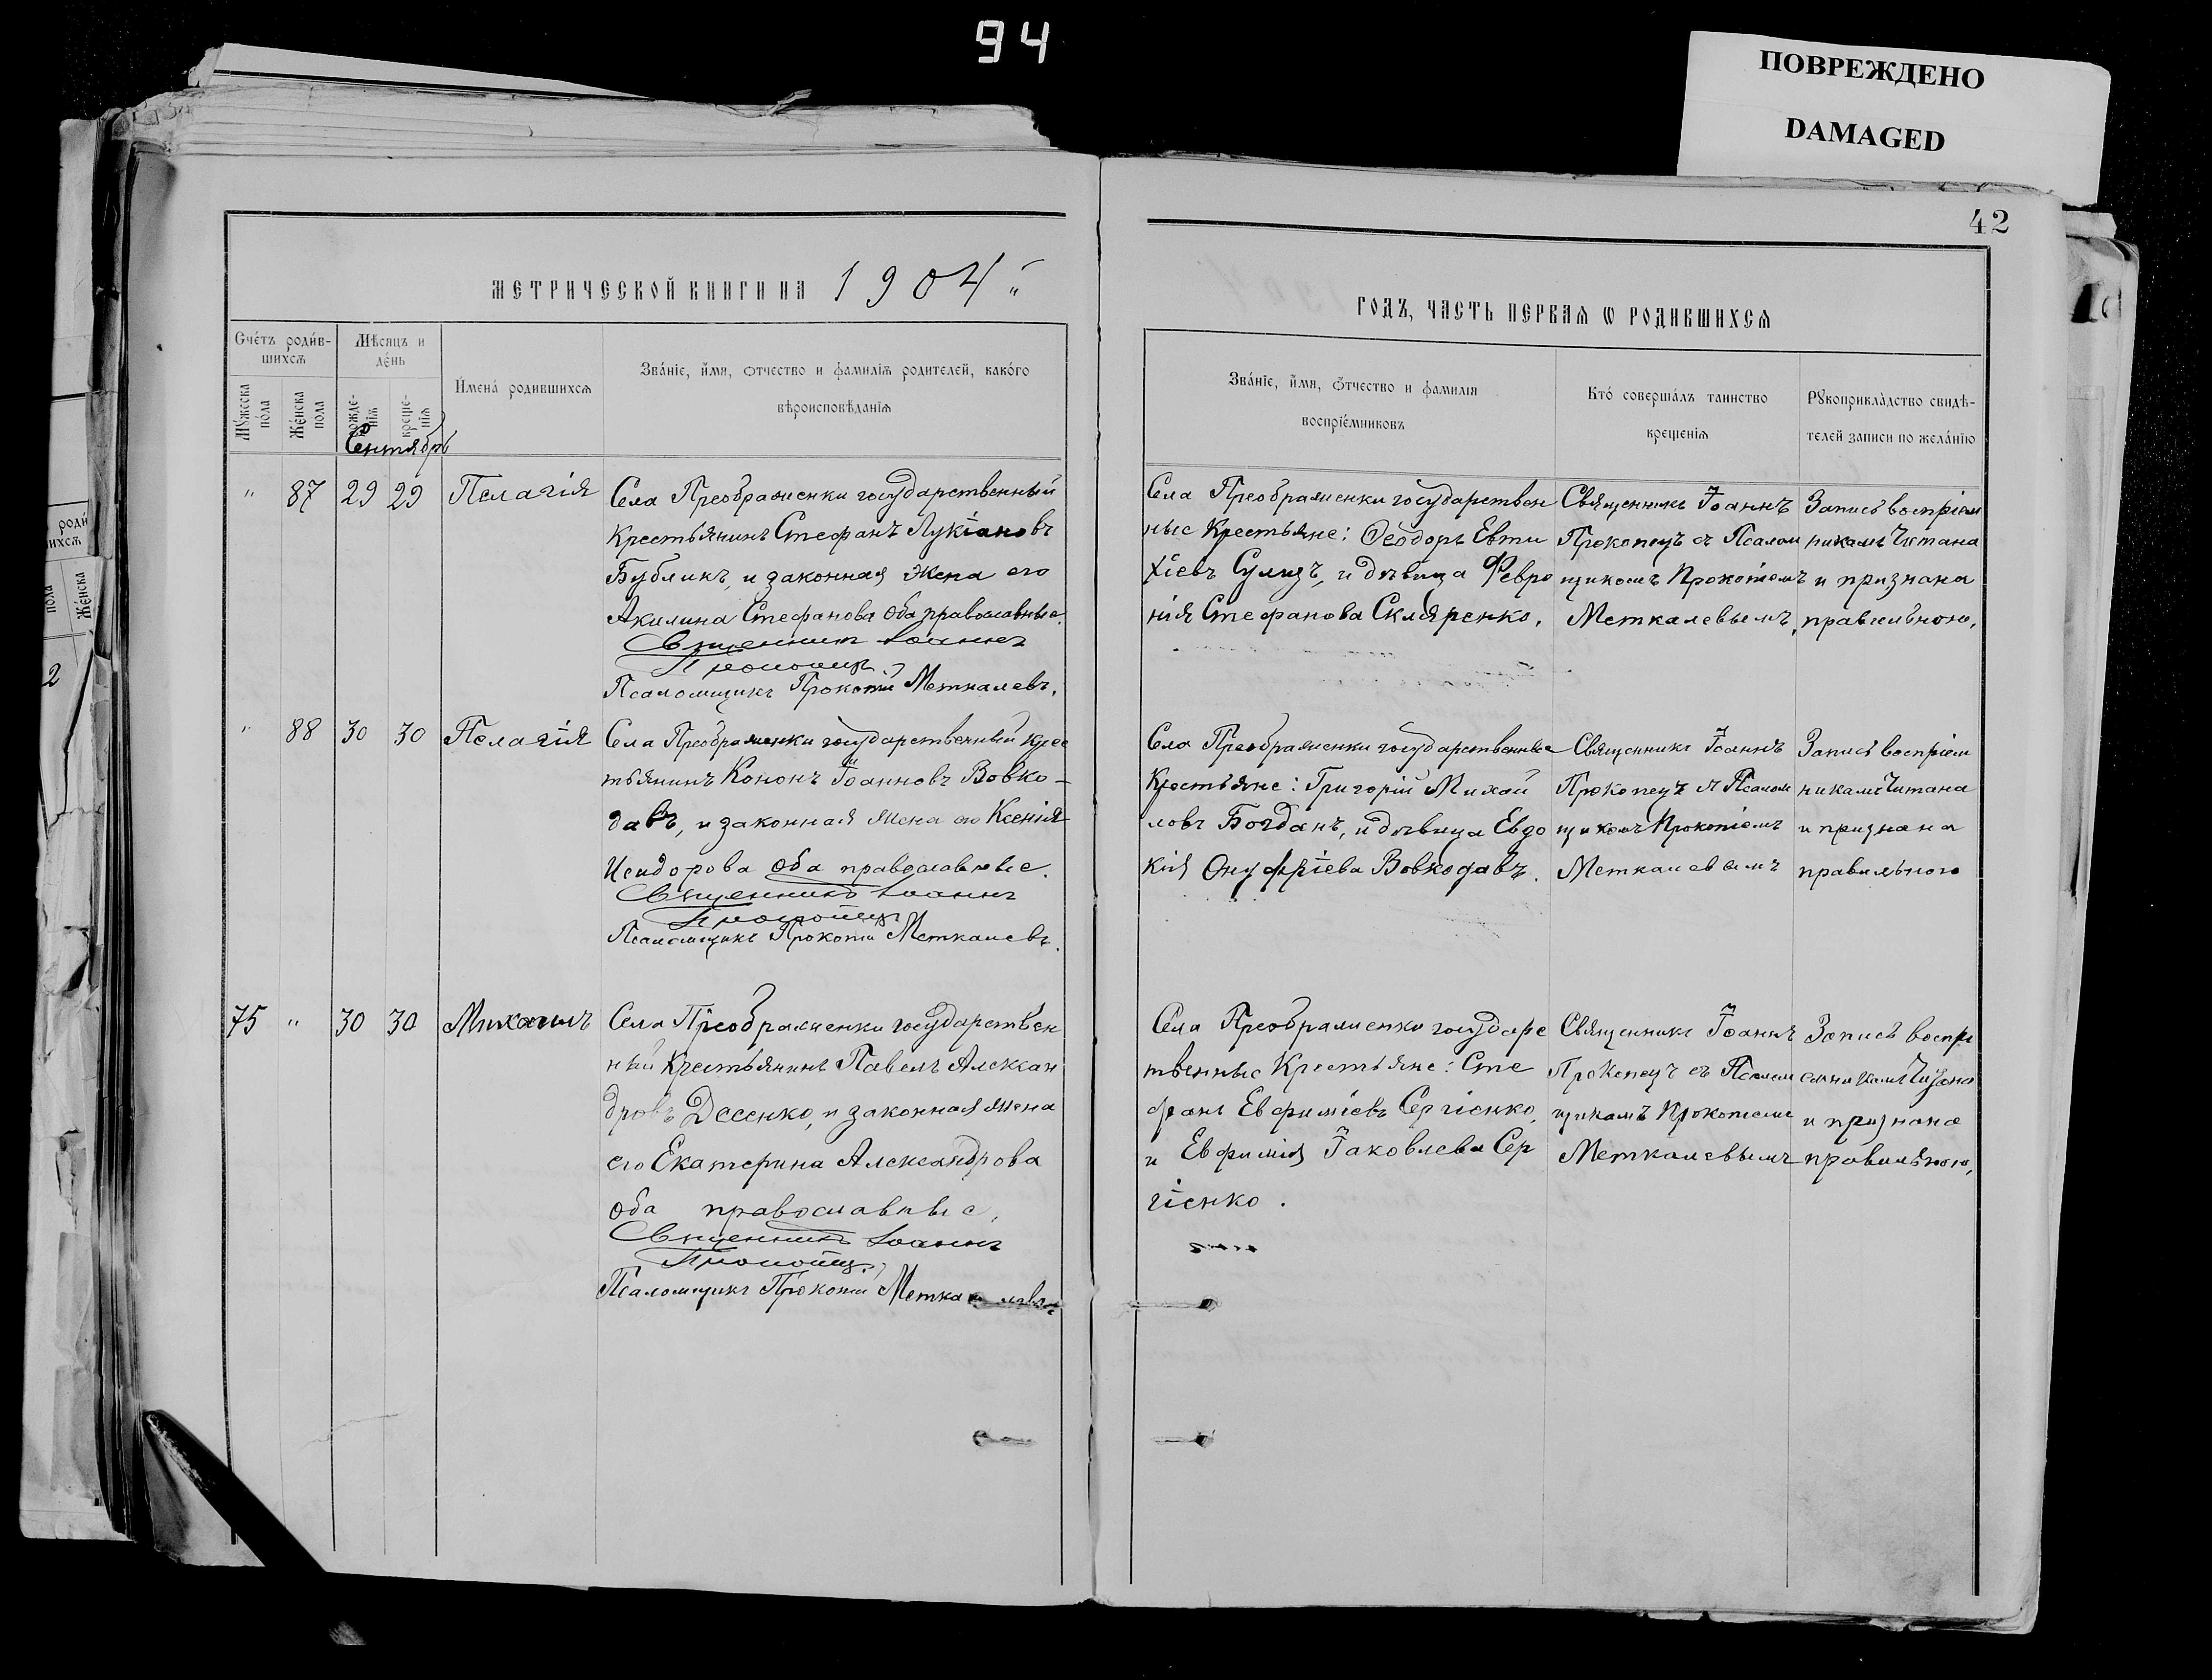 94
ПОВРЕЖДЕНО
DAMAGED
42
МЕТРИЧЕСКОЙ КНИГИ НА 1904
ГОДЪ, ЧАСТЬ ПЕРВАЯ Ѡ РОДИВШИХСЯ
Счетъ родив-
шихся
Мужеска
пола
Женска
пола
Мѣсяцъ и
день
рожде-
нія
креще-
нія
Имена родившихся
Званіе, имя, отчество и фамилія родителей, какого
вѣроисповѣданія
Званіе, имя, отчество и фамилія
воспріемниковъ
Кто совершалъ таинство
крещенія
Рукоприкладство свидѣ-
телей записи по желанію
Сентябрь
" 87 29 29 Пелагія
Села Преображенки государственный
Крестьянинъ Стефанъ Лукіановъ
Бубликъ, и законная жена его
Акилина Стефанова оба православные.
Священникъ Іоаннъ
Прокопецъ
Псаломщикъ Прокопій Меткалевъ.
Села Преображенки государствен
ные Крестьяне: Ѳеодоръ Евти
хіевъ Сулизъ, и дѣвица Февро
нія Стефанова Скляренко.
Священникъ Іоаннъ
Прокопецъ съ Псалом
щикомъ Прокопіемъ
Меткалевымъ.
Запись воспріем
никамъ читана
и признана
правильною.
" 88 30 30 Пелагія
Села Преображенки государственный крес
тьянинъ Кононъ Іоанновъ Вовко-
давъ, и законная жена его Ксенія
Исидорова оба православные.
Священникъ Іоаннъ
Прокопецъ
Псаломщикъ Прокопій Меткалевъ.
Села Преображенки государственные
Крестьяне: Григорій Михай
ловъ Богданъ, и дѣвица Евдо
кія Онуфріева Вовкодавъ.
Священникъ Іоаннъ
Прокопецъ съ Псалом
щикомъ Прокопіемъ
Меткалевымъ
Запись воспріем
никамъ читана
и признана
правильною
75 " 30 30 Михаилъ
Села Преображенки государствен
ный Крестьянинъ Павелъ Алексан
дровъ Десенко, и законная жена
его Екатерина Александрова
оба православные.
Священникъ Іоаннъ
Прокопецъ
Псаломщикъ Прокопій Меткалевъ
Села Преображенки государс
твенные Крестьяне: Сте
фанъ Евфиміевъ Сергіенко,
и Евфимія Іаковлева Сер
гіенко.
Священникъ Іоаннъ
Прокопецъ съ Псалом
щикомъ Прокопіемъ
Меткалевымъ
Запись воспрі
емникамъ читана
и признана
правильною.
роди
ихся
пола
Женска
2